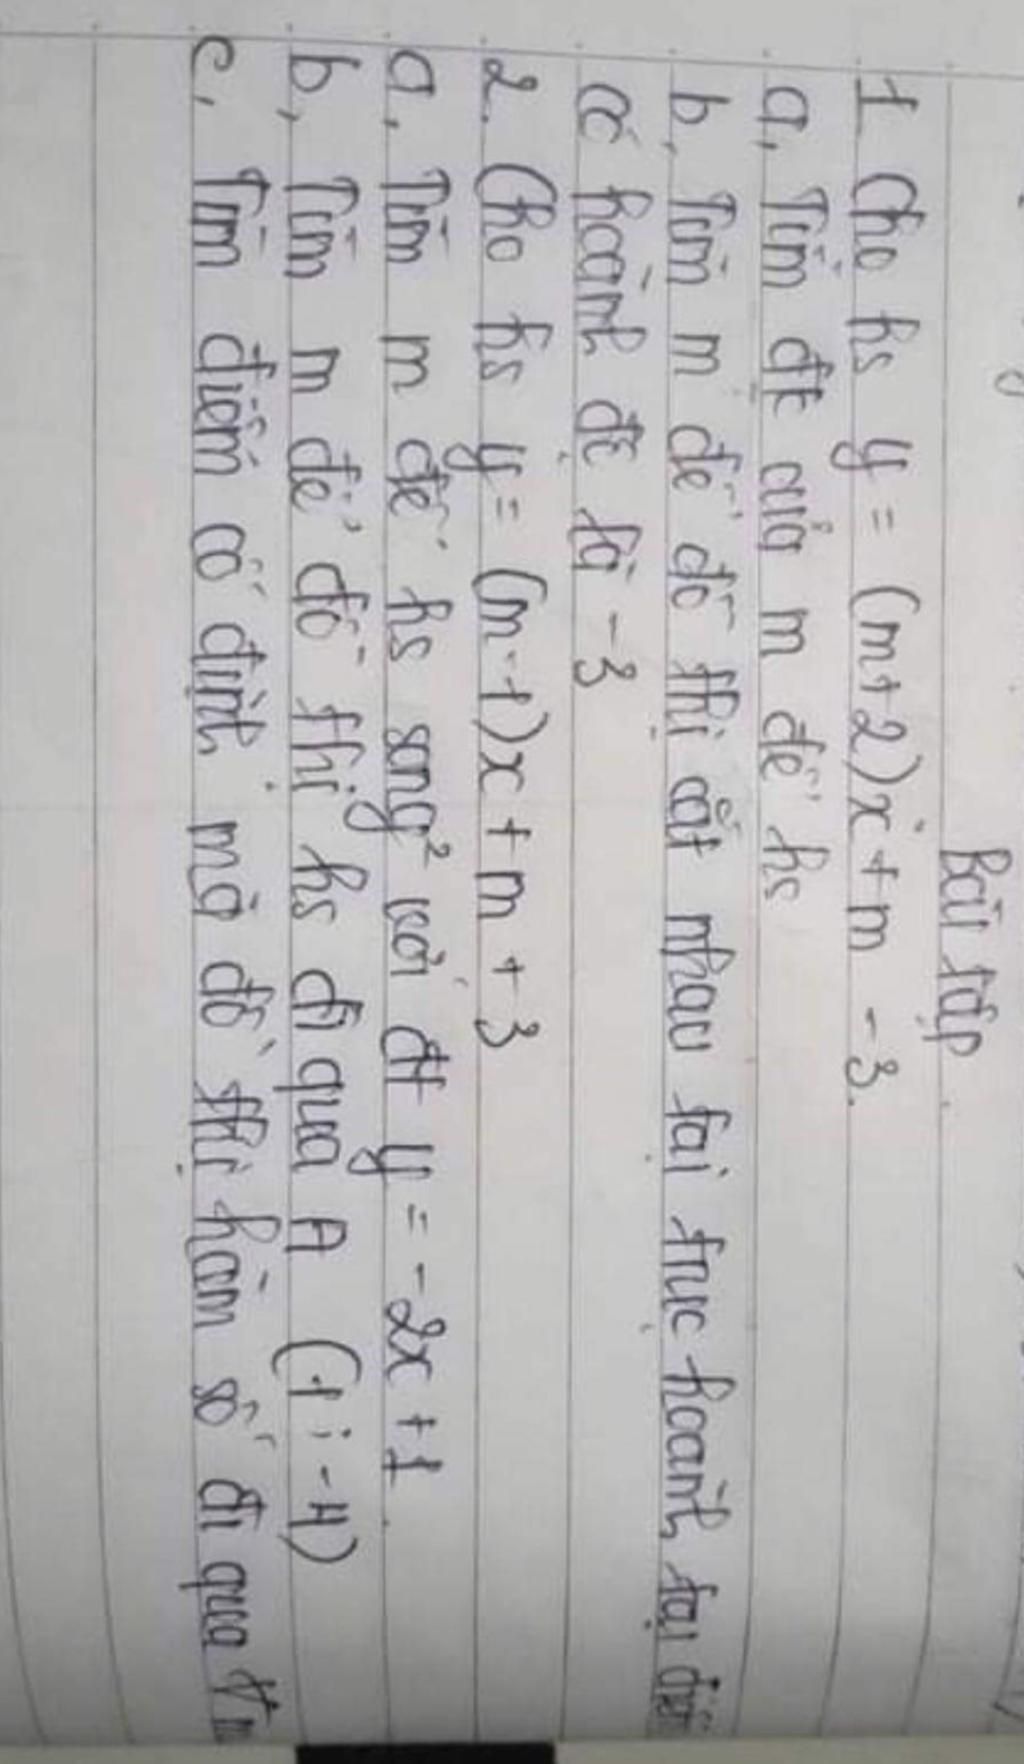 Bài tập
1. Cho hs y = (m+2)x + m - 3.
a, Tìm đk của m để hs
b, Tìm m để đồ thị cắt nhau tại trục hoành tại điểm
có hoành độ là -3
2. Cho hs y = (m-1)x + m + 3
a, Tìm m để hs song² với đt y = -2x + 1
b, Tìm m để đồ thị hs đi qua A (1; -4)
c, Tìm điểm cố định mà đồ thị hàm số đi qua ∀m